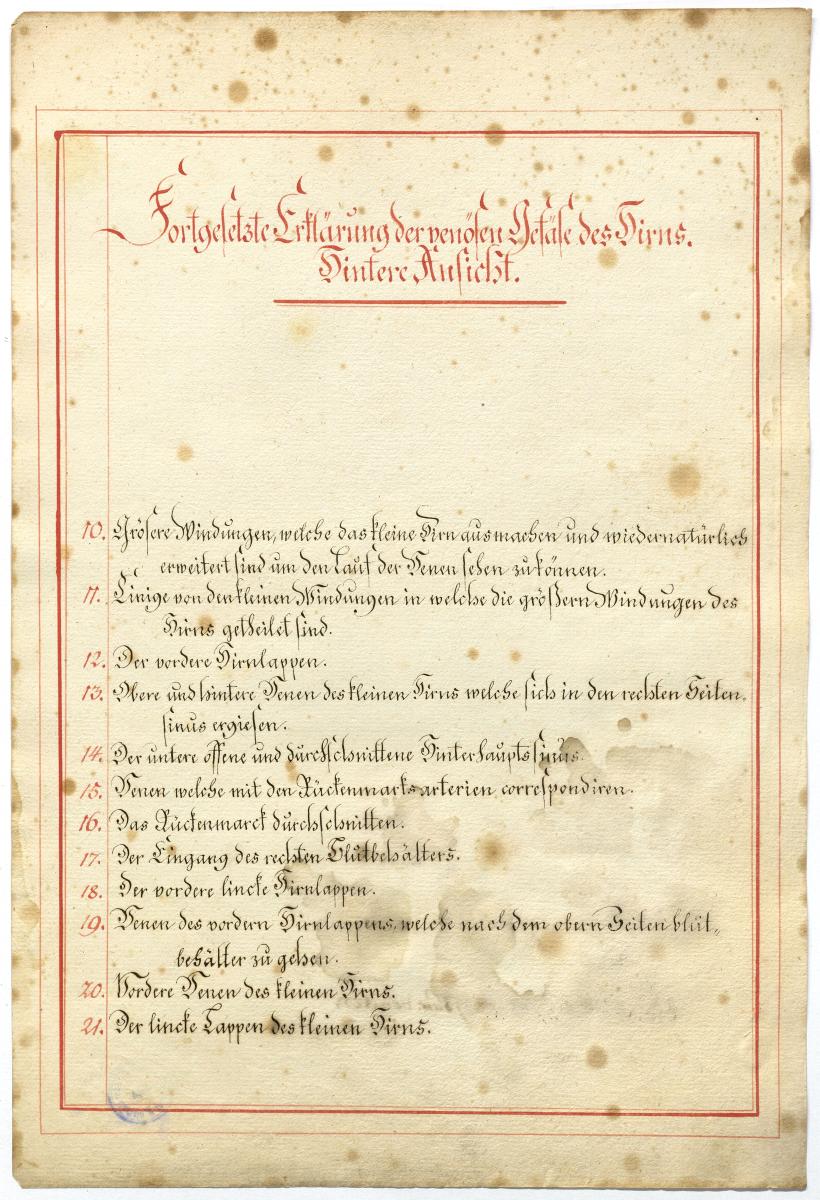 Fortgesetzte Erklärung der venösen Gefäse des Hirns.
Hintere Ansicht.
10. Grösere Windungen, welche das kleine Hirn ausmachen und wiedernatürlich
erweitert sind um den Lauf der Venen sehen zu können.
11. Einige von den kleinen Windungen in welche die größern Windungen des
Hirns getheilet sind.
12. Der vordere Hirnlappen.
13. Obere und hintere Venen des kleinen Hirns welche sich in den rechten Seiten-
sinus ergiesen.
14. Der untere offene und durchschnittene Hinterhauptssinus.
15. Venen welche mit den Rückenmarksarterien correspondiren.
16. Das Rückenmarck durchschnitten.
17. Der Eingang des rechten Blutbehälters.
18. Der vordere lincke Hirnlappen.
19. Venen des vordern Hirnlappens, welche nach dem obern Seiten blut„
behälter zu gehen.
20. Vordere Venen des kleinen Hirns.
21. Der lincke Lappen des kleinen Hirns.